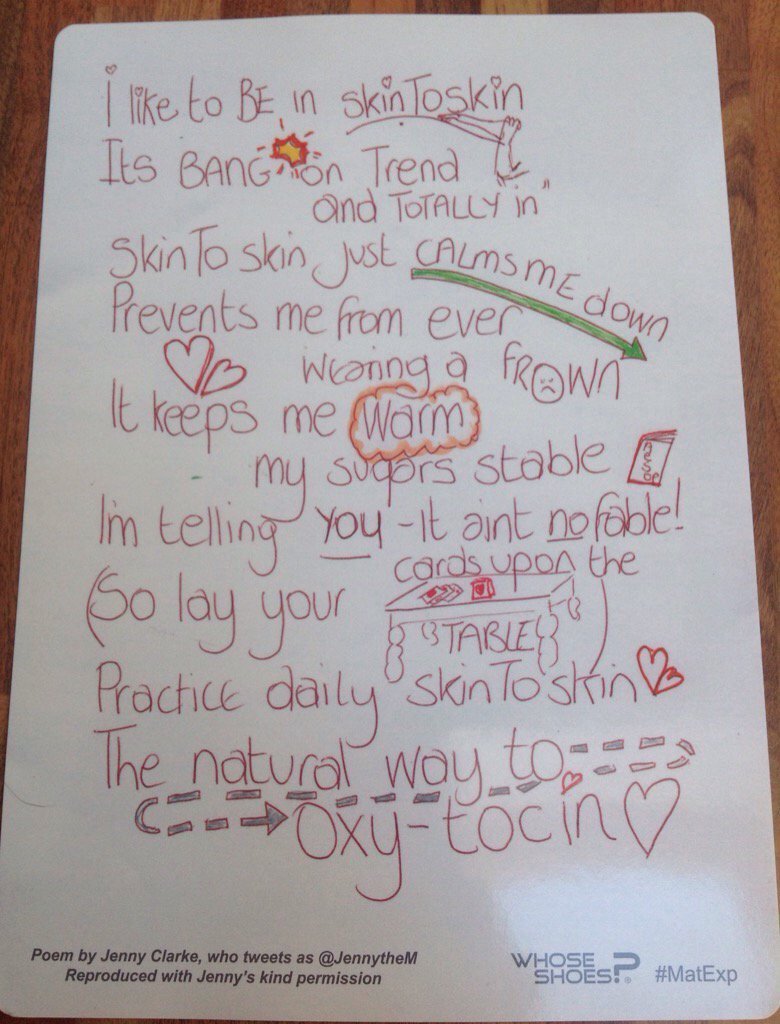 I like to BE in skinToskin
Its BANG on Trend
and TOTALLY in"
SkinTo skin just CALMS ME down
Prevents me from ever
wearing a FROWN
It keeps me warm
my sugars stable
I'm telling you - It aint no fable!
cards upon the
(So lay your
TABLE)
Practice daily skinTo'skin
The natural way to
Oxy-tocin
Poem by Jenny Clarke, who tweets as @JennytheM
Reproduced with Jenny's kind permission
WHOSE
SHOES?®
#MatExp